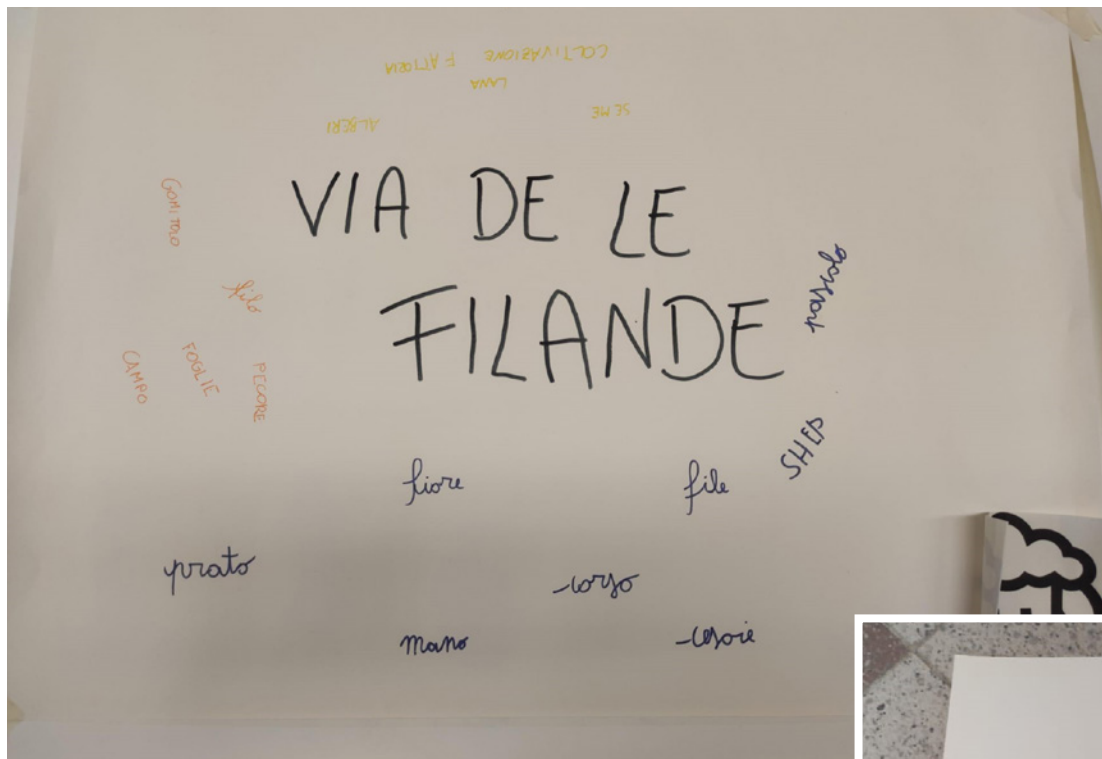 COLTIVAZIONE FATTORIA
LANA
SEME
ALBERI
VIA DE LE
FILANDE
GOMITOLO
filo
CAMPO
FOGLIE
PECORE
SHEP
fiore
file
prato
corso
mano
cesoie